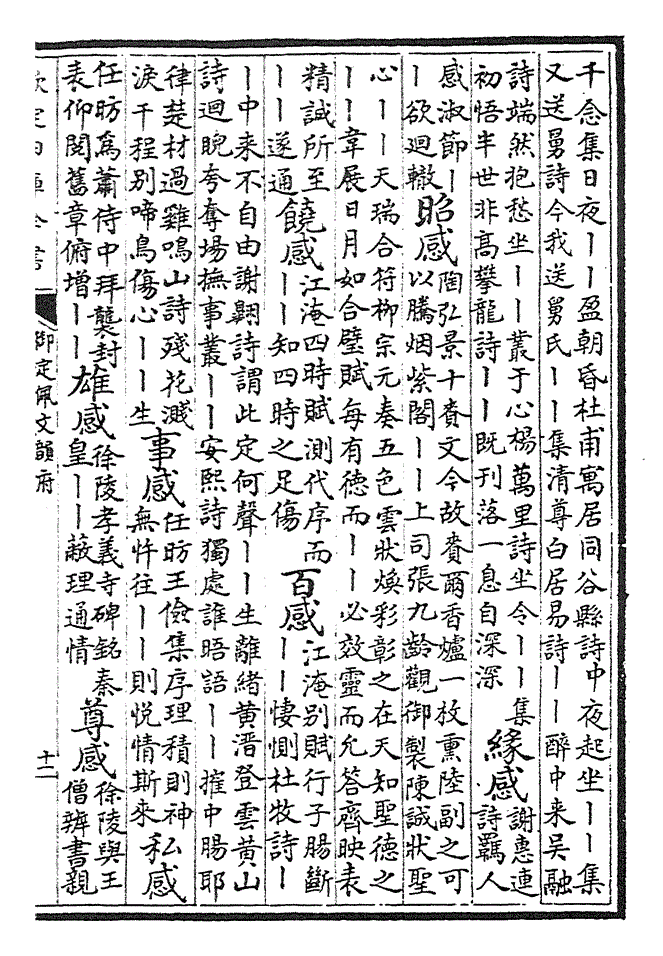 千念集日夜丨丨盈朝昏杜甫寓居同谷縣詩中夜起坐丨丨集
又送舅詩今我送舅氏丨丨集清尊白居易詩丨丨醉中来吴融
詩端然抱愁坐丨丨叢于心楊萬里詩坐令丨丨集
初悟半世非高攀龍詩丨丨既刊落一息自深深
緣感
謝惠連
詩羈人
感淑節丨
丨欲迴轍
昭感
陶弘景十賚文今故賚爾香爐一放熏陸副之可
以騰烟紫閣丨丨上司張九齡觀御製陳誠狀聖
心丨丨天瑞合符柳宗元奏五色雲狀煥彩彰之在天知聖德之
丨丨韋展日月如合璧賦每有德而丨丨必效靈而允答齊映表
精誠所至
丨丨遂通
饒感
江淹四時賦測代序而
丨丨知四時之足傷
百感
江淹别賦行子腸斷
丨丨悽惻杜牧詩丨
丨中来不自由謝翺詩謂此定何聲丨丨生離緒黄溍登雲黄山
詩迴睨夸奪場撫事叢丨丨安熙詩獨處誰晤語丨丨摧中腸耶
律楚材過雞鳴山詩殘花濺
淚千程别啼鳥傷心丨丨生
事感
任昉王儉集序理積則神
無忤往丨丨則悦情斯来
私感
任昉為蕭侍中拜襲封
表仰閲舊章俯增丨丨
雄感
徐陵孝義寺碑銘秦
皇丨丨蔽理通情
尊感
徐陵與王
僧辨書親
欽定四庫全書
御定佩文韻府
十二